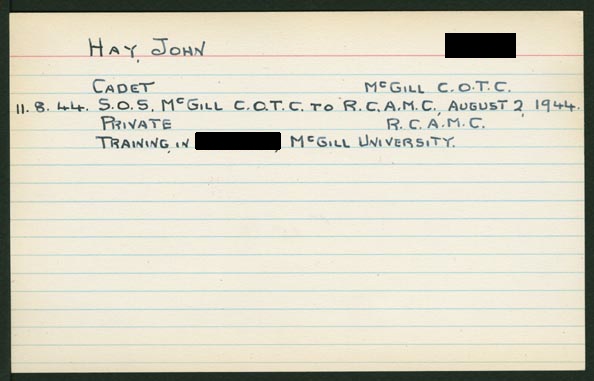 Hay, John
Cadet McGill C.O.T.C.
11.8.44. S.O.S. McGill C.O.T.C. to R.C.A.M.C., August 2, 1944.
Private R.C.A.M.C.
Training, in , McGill University.